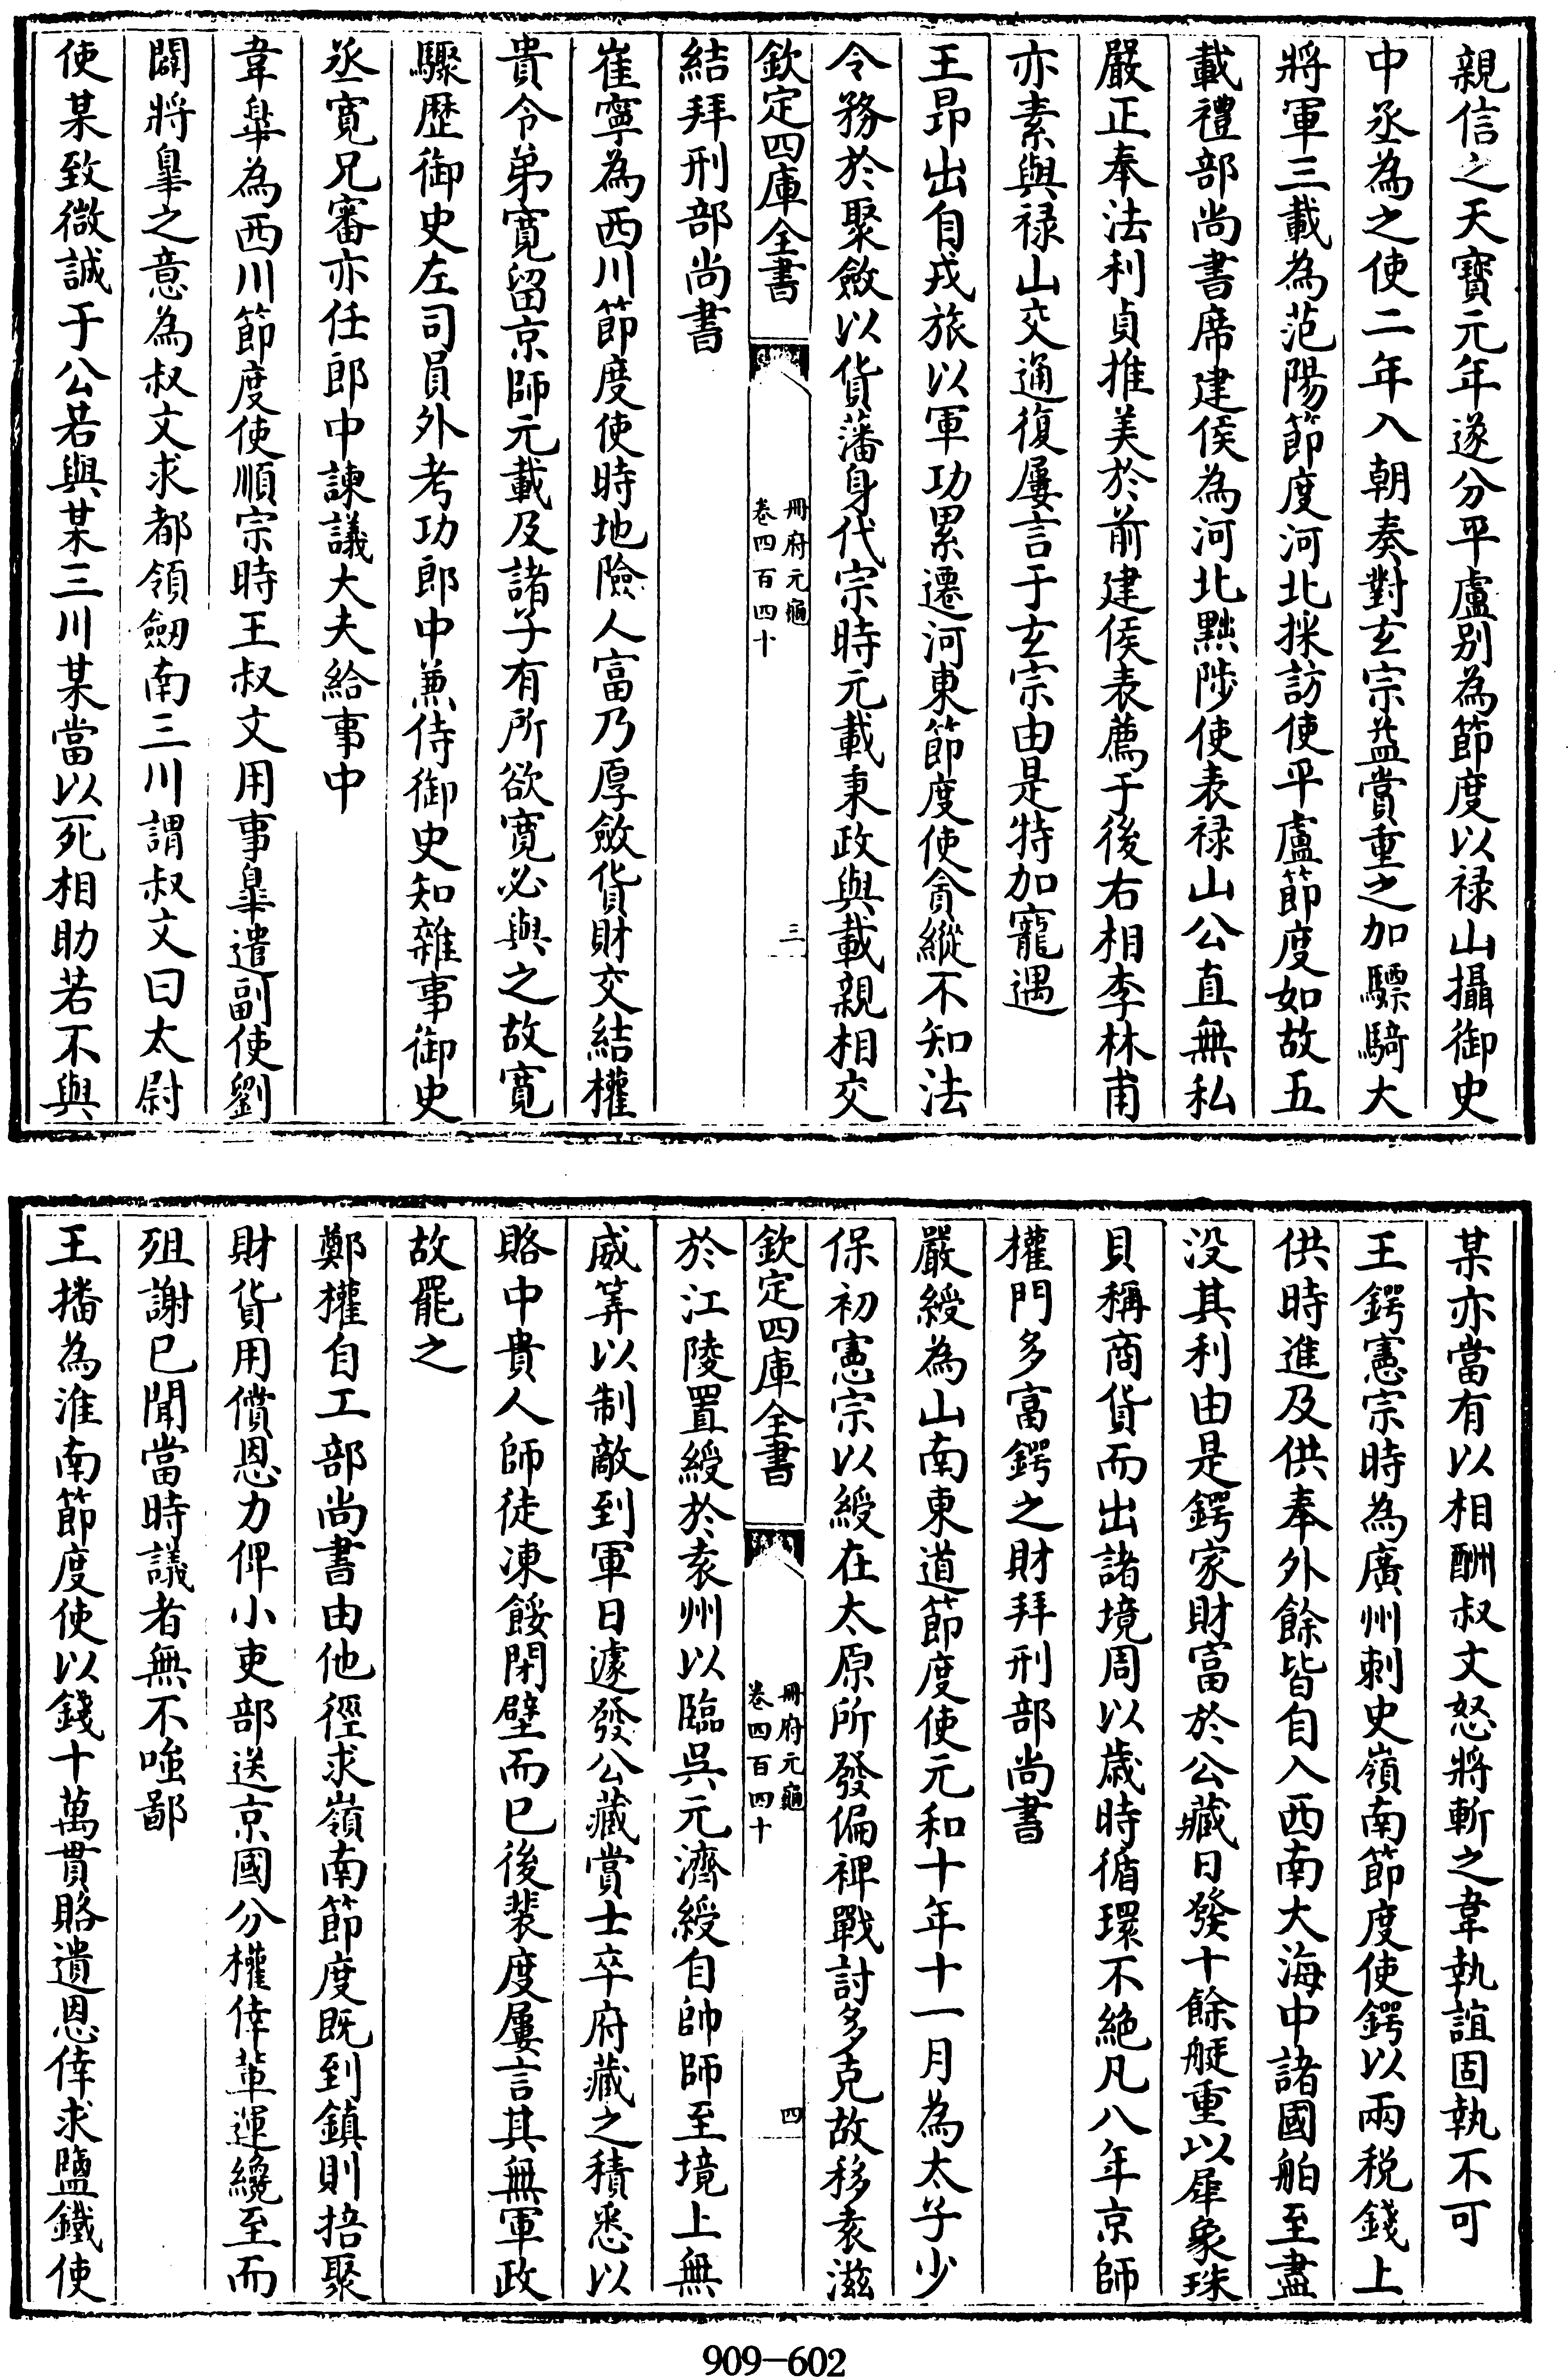 親信之天寶元年遂分平盧别為節度以禄山攝御史
中丞為之使二年入朝奏對玄宗益賞重之加驃騎大
將軍三載為范陽節度河北採訪使平盧節度如故五
載禮部尚書席建侯為河北黜陟使表禄山公直無私
嚴正奉法利貞推美於前建侯表薦于後右相李林甫
亦素與禄山交通復屢言于玄宗由是特加寵遇
王昂出自戎旅以軍功累遷河東節度使貪縱不知法
令務於聚斂以貨藩身代宗時元載秉政與載親相交
欽定四庫全書
冊府元龜
卷四百四十
三
結拜刑部尚書
崔寧為西川節度使時地險人富乃厚斂貨財交結權
貴令弟寛留京師元載及諸子有所欲寛必與之故寛
驟歴御史左司員外考功郎中兼侍御史知雜事御史
丞寛兄審亦任郎中諫議大夫給事中
韋臯為西川節度使順宗時王叔文用事臯遣副使劉
闢將臯之意為叔文求都領劒南三川謂叔文曰太尉
使某致微誠于公若與某三川某當以死相助若不與
某亦當有以相酬叔文怒將斬之韋執誼固執不可
王鍔憲宗時為廣州刺史嶺南節度使鍔以兩税錢上
供時進及供奉外餘皆自入西南大海中諸國舶至盡
没其利由是鍔家財富於公藏日發十餘艇重以犀象珠
貝稱商貨而出諸境周以歳時循環不絶凡八年京師
權門多富鍔之財拜刑部尚書
嚴綬為山南東道節度使元和十年十一月為太子少
保初憲宗以綬在太原所發偏裨戰討多克故移袁滋
欽定四庫全書
冊府元龜
卷四百四十
四
於江陵置綬於袁州以臨吳元濟綬自帥師至境上無
威筭以制敵到軍日遽發公藏賞士卒府藏之積悉以
賂中貴人師徒凍餒閉壁而已後裴度屢言其無軍政
故罷之
鄭權自工部尚書由他徑求嶺南節度既到鎮則掊聚
財貨用償恩力俾小吏部送京國分權倖輦運纔至而
殂謝已聞當時議者無不嗤鄙
王播為淮南節度使以錢十萬貫賂遺恩倖求鹽鐵使
909-602